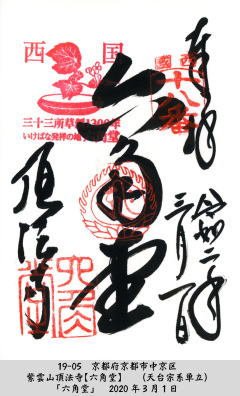 奉拝
西国
十八番
西国
三十三所草創1300年
いけばな発祥の地 六角堂
六角堂
令和二年
三月一日
頂法寺
19-05 京都府京都市中京区
紫雲山頂法寺【六角堂】 (天台宗系単立)
「六角堂」 2020年3月1日